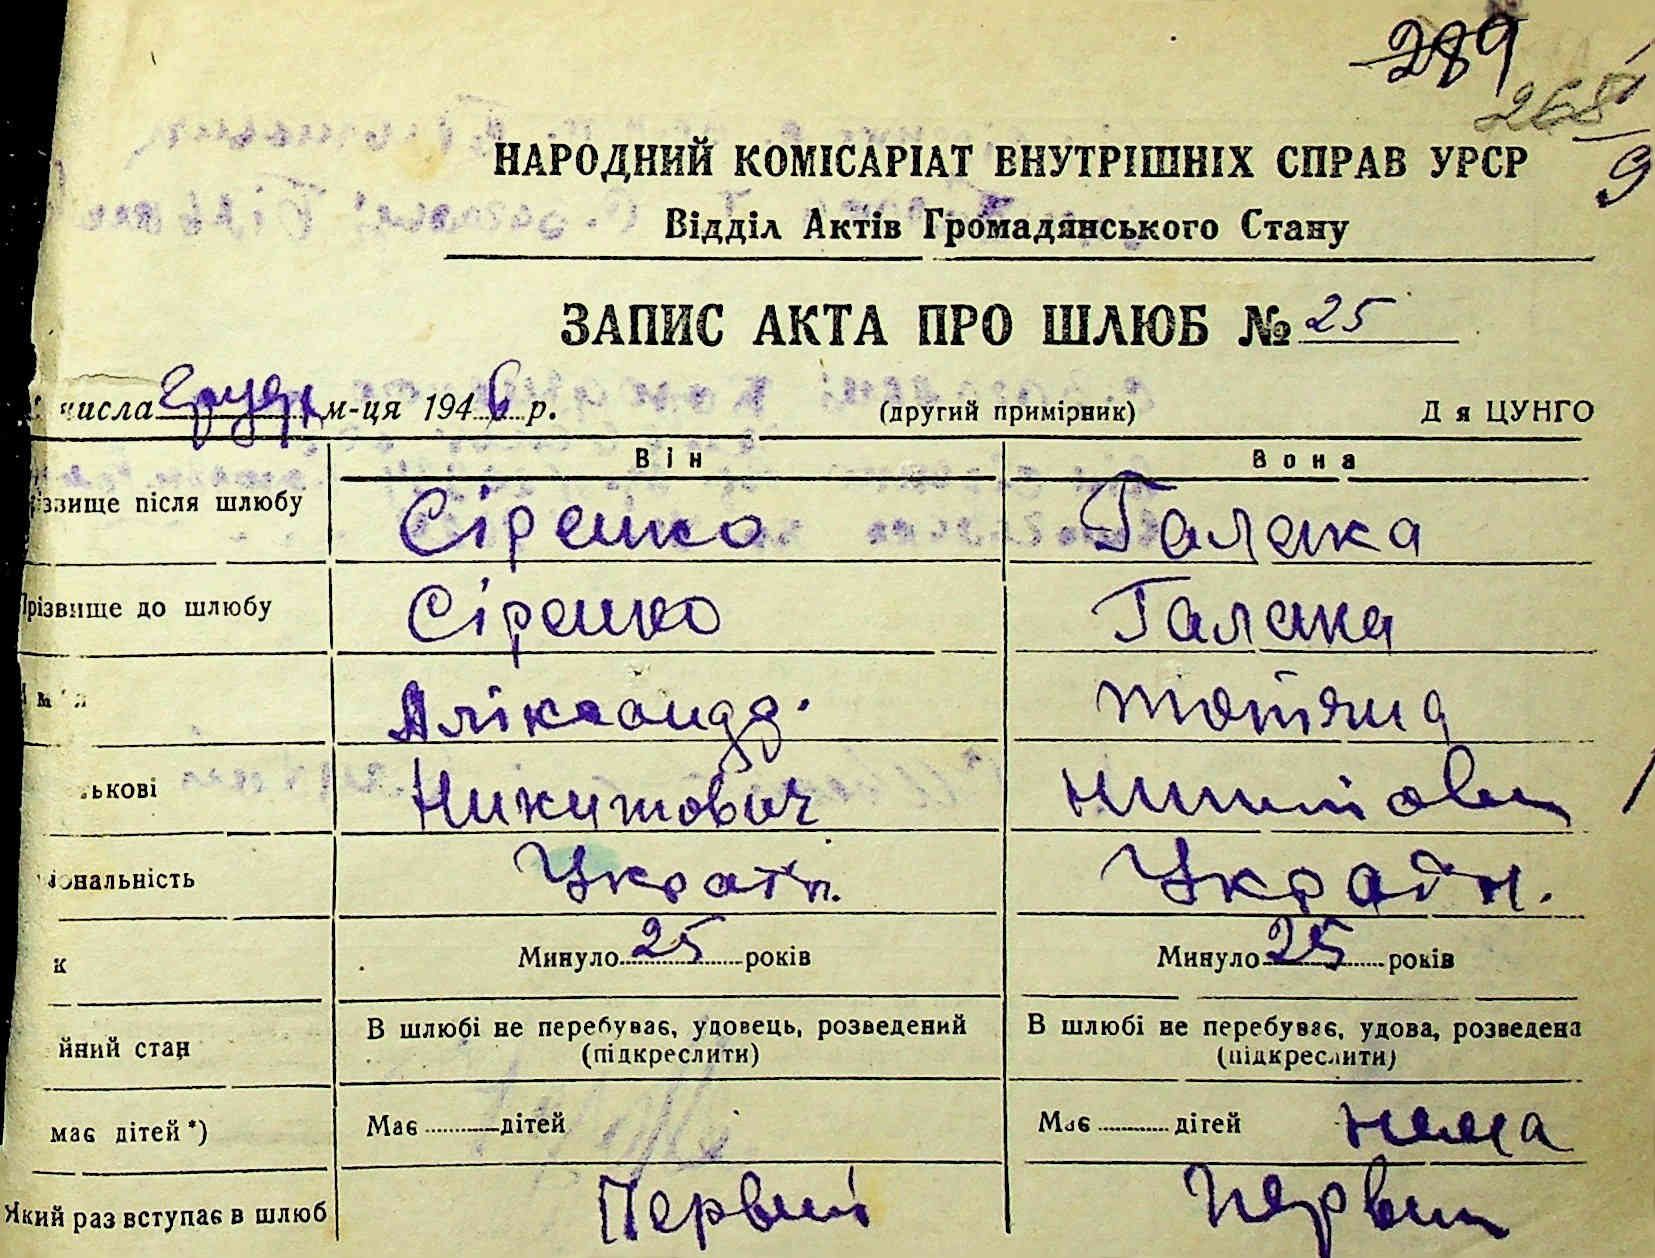 289
268
9
НАРОДНИЙ КОМІСАРІАТ ВНУТРІШНІХ СПРАВ УРСР
Відділ Актів Громадянського Стану
ЗАПИС АКТА ПРО ШЛЮБ № 25
числа Грудн м-ця 1946 р. (другий примірник) Д я ЦУНГО
Він Вона
різвище після шлюбу Сіренко Галака
Прізвище до шлюбу Сіренко Галака
м'я Аліксандр. Татяна
ькові Никитович
іональність Україн. Україн.
к Минуло 25 років Минуло 25 років
йний стан В шлюбі не перебуває, удовець, розведений В шлюбі не перебуває, удова, розведена
(підкреслити) (підкреслити)
має дітей *) Має дітей Має дітей нема
Який раз вступає в шлюб Первий Первий